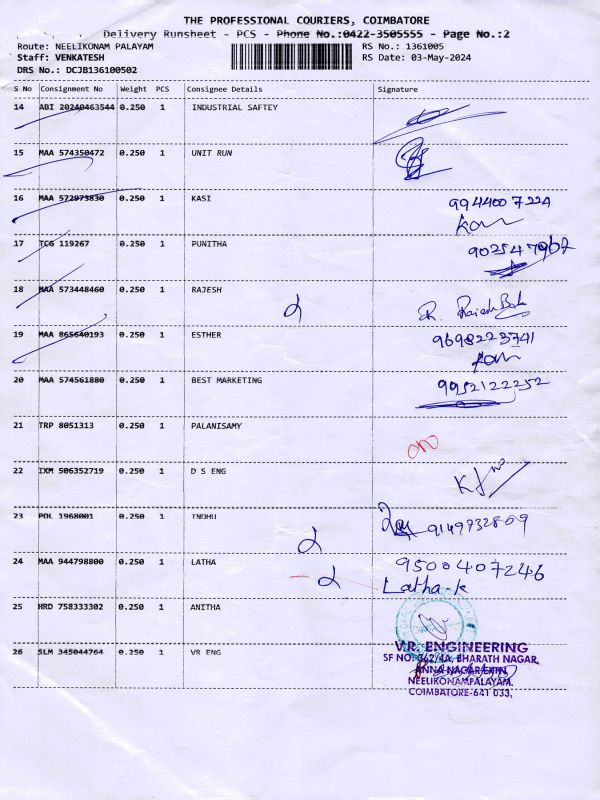 THE PROFESSIONAL COURIERS, COIMBATORE
Delivery Runsheet - PCS - Phone No.:0422-3505555 - Page No.:2
Route: NEELIKONAM PALAYAM
RS No.: 1361005
Staff: VENKATESH
RS Date: 03-May-2024
DRS No.: DCJB136100502
S No Consignment No Weight PCS Consignee Details Signature
14 ABI 20240463544 0.250 1 INDUSTRIAL SAFTEY
15 MAA 574350472 0.250 1 UNIT RUN
16 MAA 572973830 0.250 1 KASI 9944007224
17 TCG 119267 0.250 1 PUNITHA 9025447967
18 MAA 573448460 0.250 1 RAJESH
19 MAA 865640193 0.250 1 ESTHER 9698223741
20 MAA 574561880 0.250 1 BEST MARKETING 9952122252
21 TRP 8051313 0.250 1 PALANISAMY
22 IXM 506352719 0.250 1 D S ENG
23 POL 1968001 0.250 1 INDHU 9149732809
24 MAA 944798800 0.250 1 LATHA 9500407246
Latha-k
25 HRD 758333302 0.250 1 ANITHA
26 SLM 345044764 0.250 1 VR ENG
V.R. ENGINEERING
SF NO: 362/4A, BHARATH NAGAR,
ANNA NAGAR EXTN,
NEELIKONAMPALAYAM,
COIMBATORE-641 033.